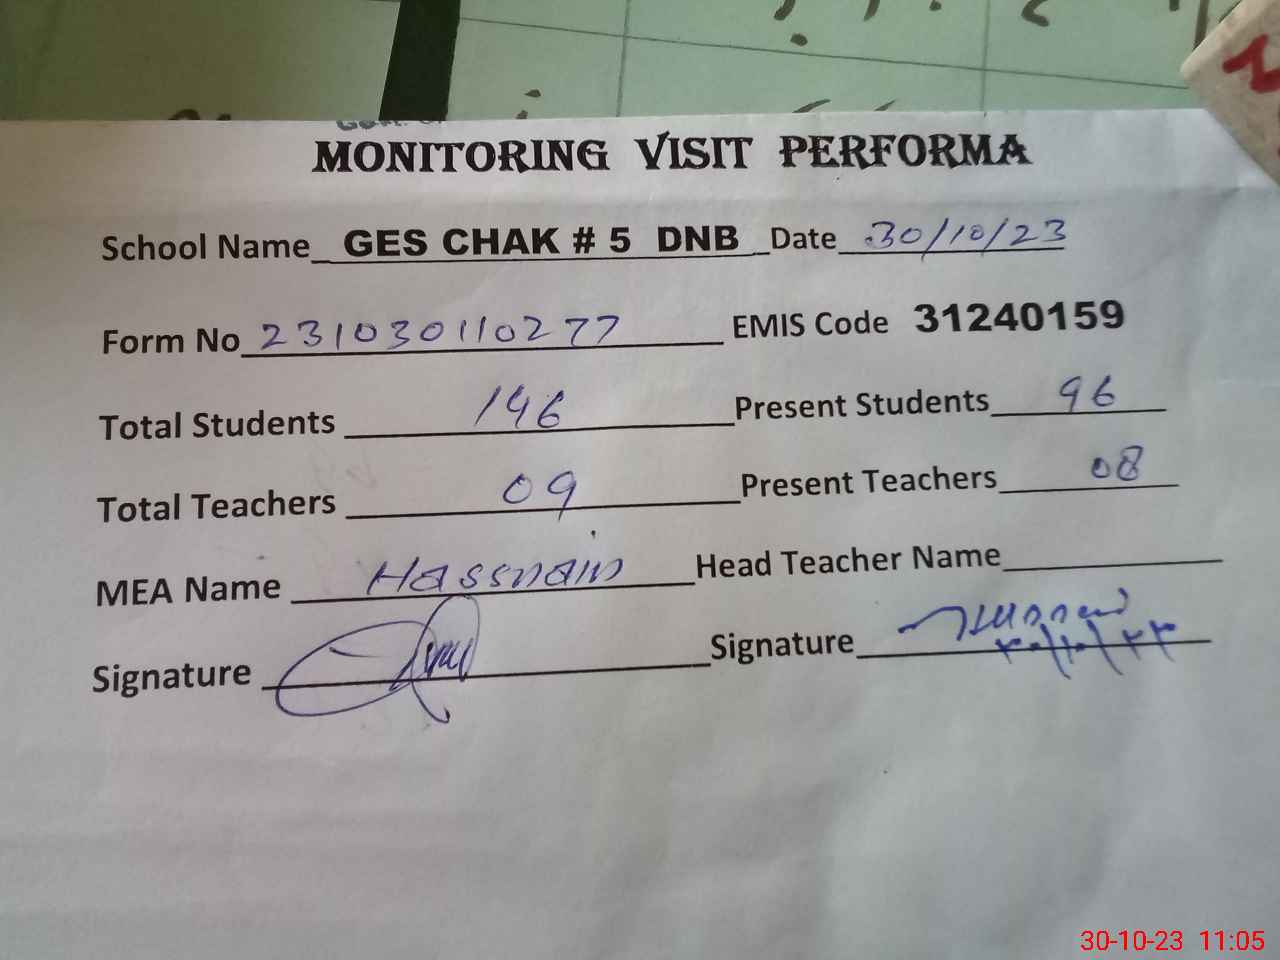 MONITORING VISIT PERFORMA
School Name GES CHAK # 5 DNB Date 30/10/23
Form No 231030110277 EMIS Code 31240159
Total Students 146 Present Students 96
Total Teachers 09 Present Teachers 08
MEA Name Hassnain Head Teacher Name
Signature Signature
30-10-23 11:05